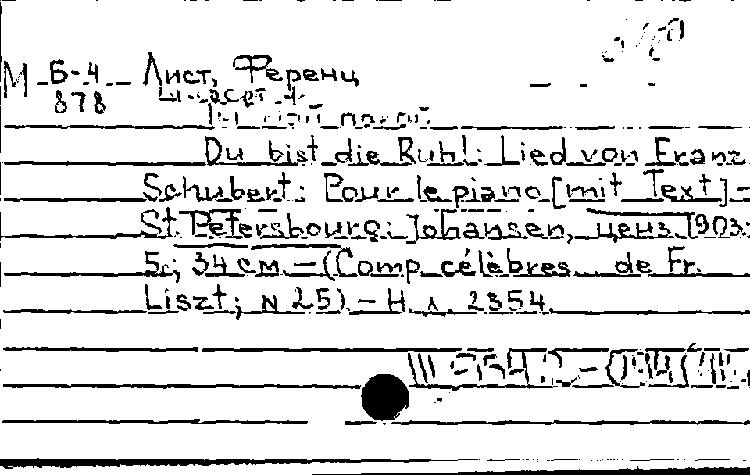 М Б-4 Лист, Ференц
878
Ты мой покой
Du bist die Ruh!: Lied von Franz
Schubert: Pour le piano [mit Text]-
St. Petersbourg: Johansen, ценз. 1903.
5с; 34 см. – (Comp. célèbres... de Fr.
Liszt; N 25). – Н. л. 2354.